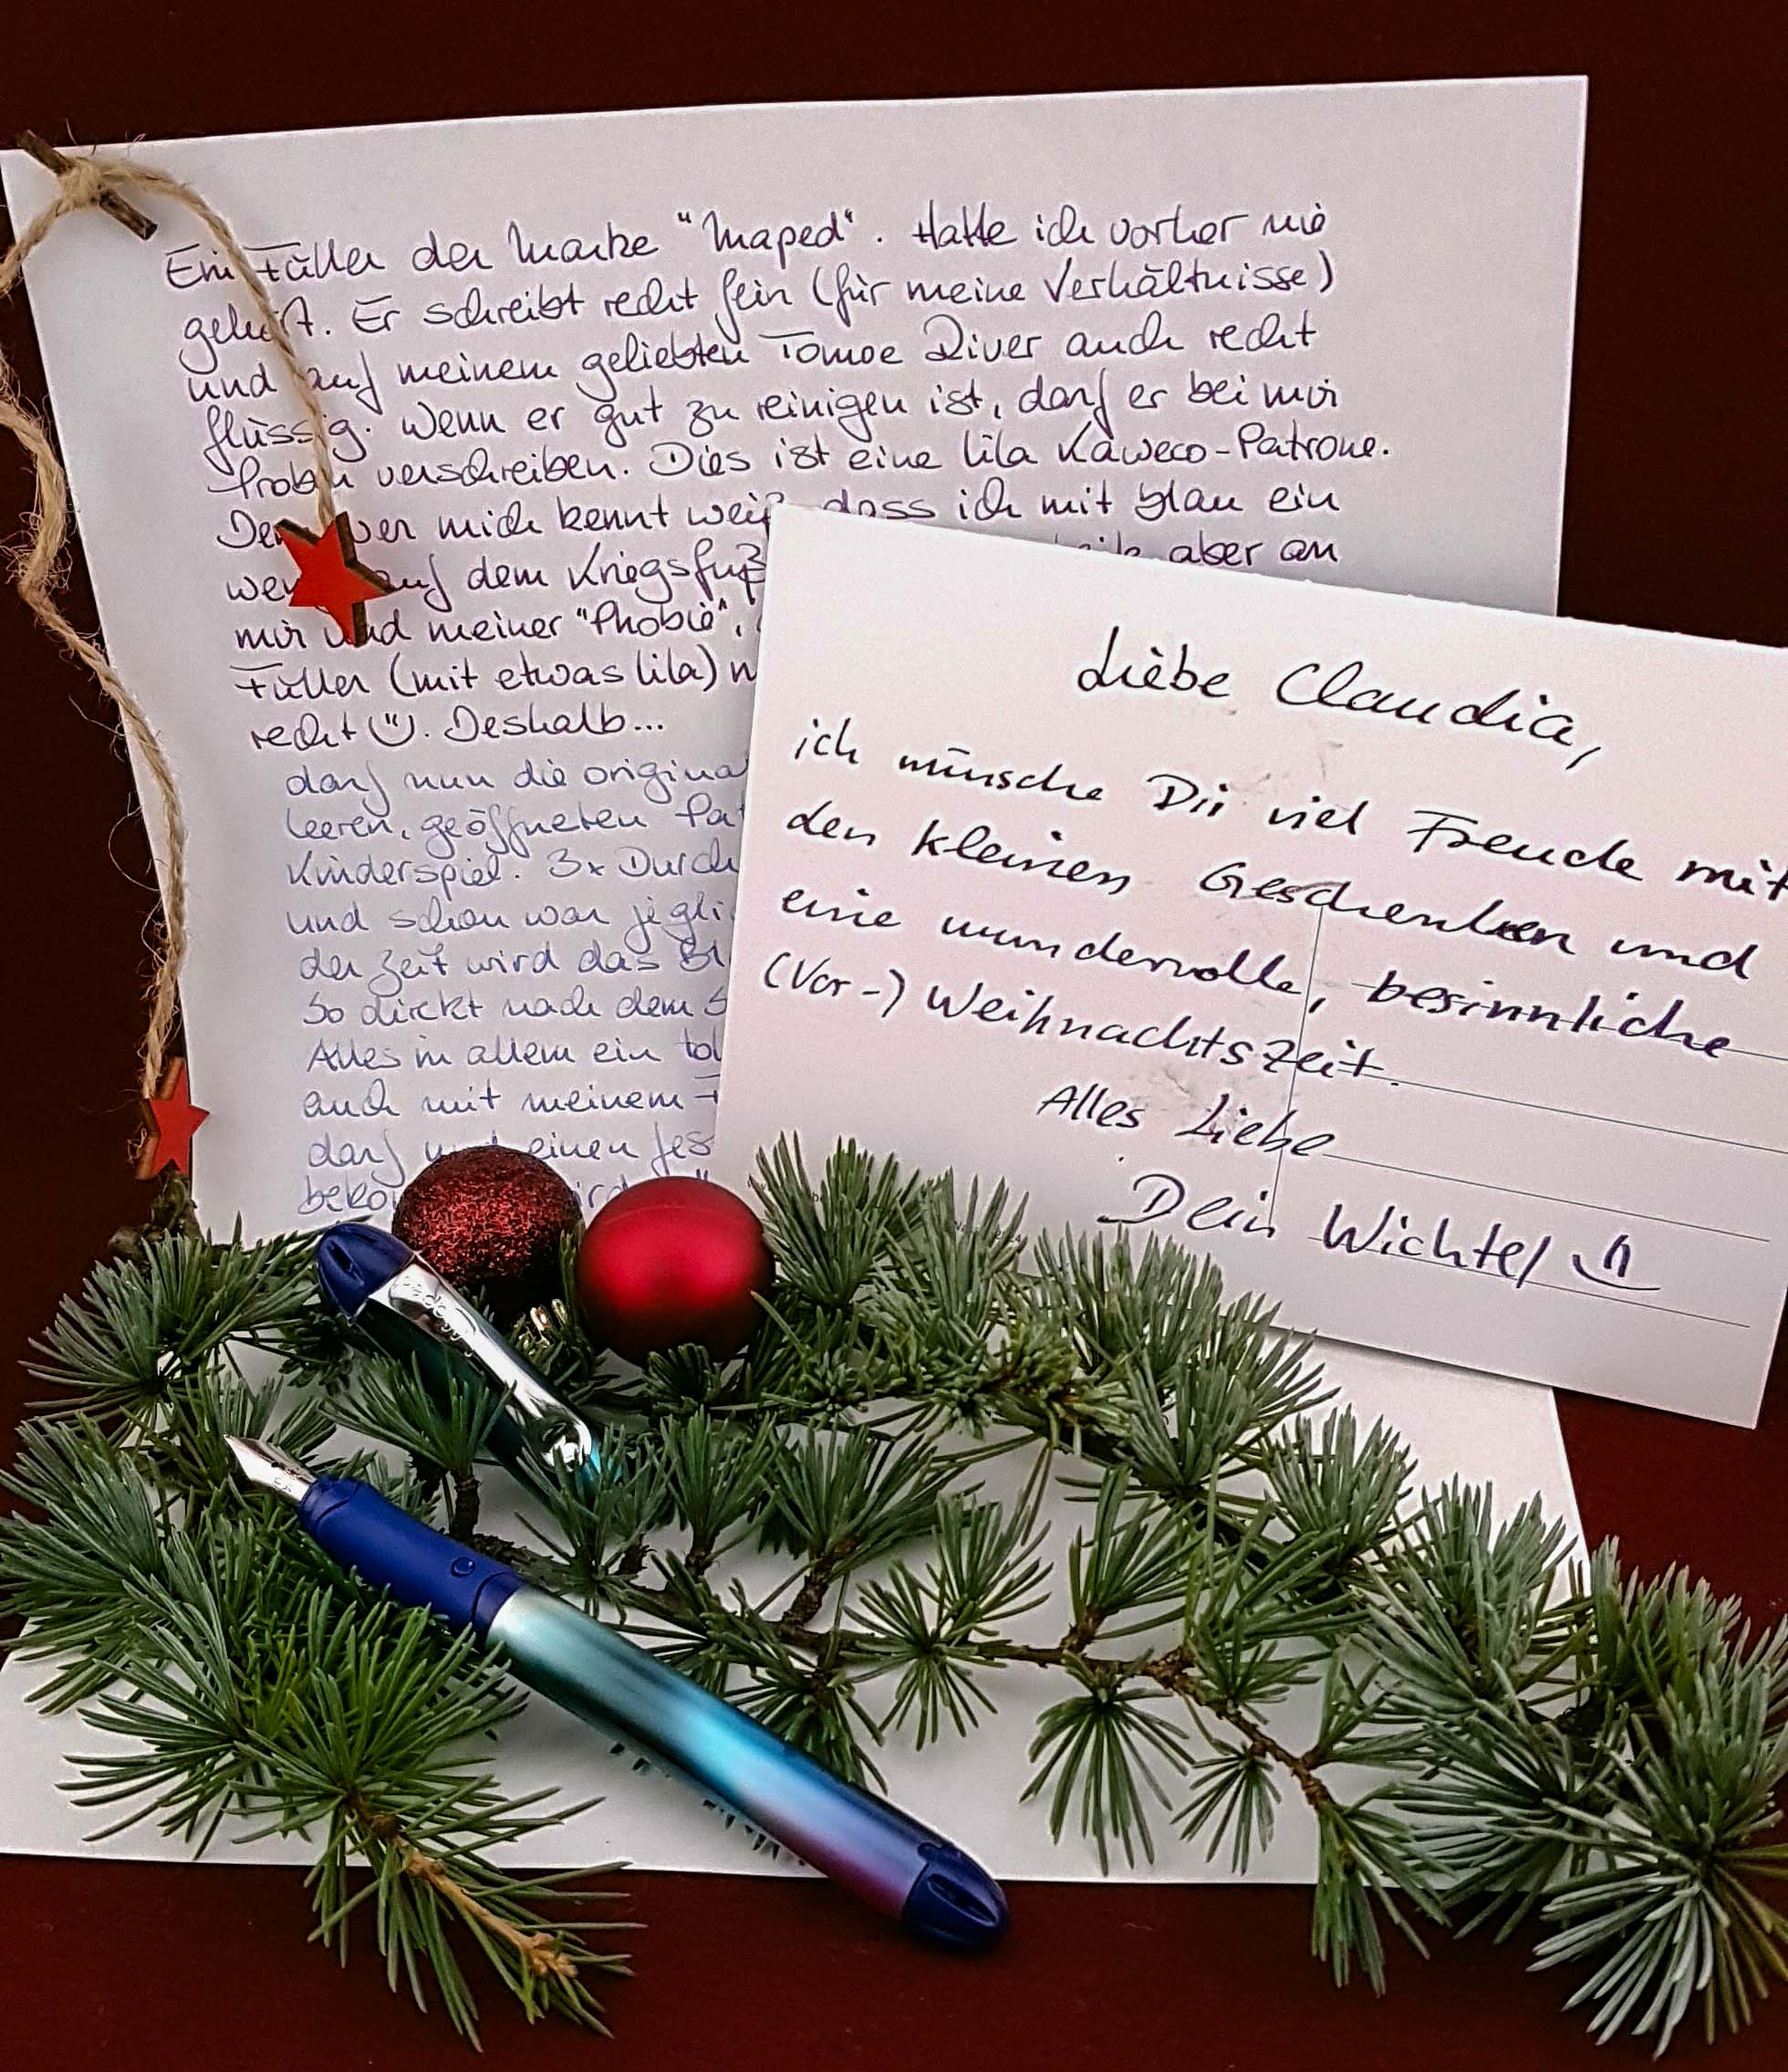 Ein Füller der Marke "Maped". Hatte ich vorher nie
gehört. Er schreibt recht fein (für meine Verhältnisse)
und auf meinem geliebten Tomoe River auch recht
flüssig. Wenn er gut zu reinigen ist, darf er bei mir
Proben verschreiben. Dies ist eine lila Kaweco-Patrone.
Denn wer mich kennt weiß dass ich mit blau ein
wenig auf dem Kriegsfuß aber an
mir und meiner "Phobie",
Füller (mit etwas lila)
recht. Deshalb...
darf nun die
leeren, geöffneten
Kinderspiel. 3x
und schon war
der Zeit wird das
So direkt nach dem
Alles in allem ein
auch mit meinem
darf einen
Liebe Claudia,
ich wünsche Dir viel Freude mit
den kleinen Geschenken und
eine wundervolle, besinnliche
(Vor-) Weihnachtszeit.
Alles Liebe
Dein Wichtel